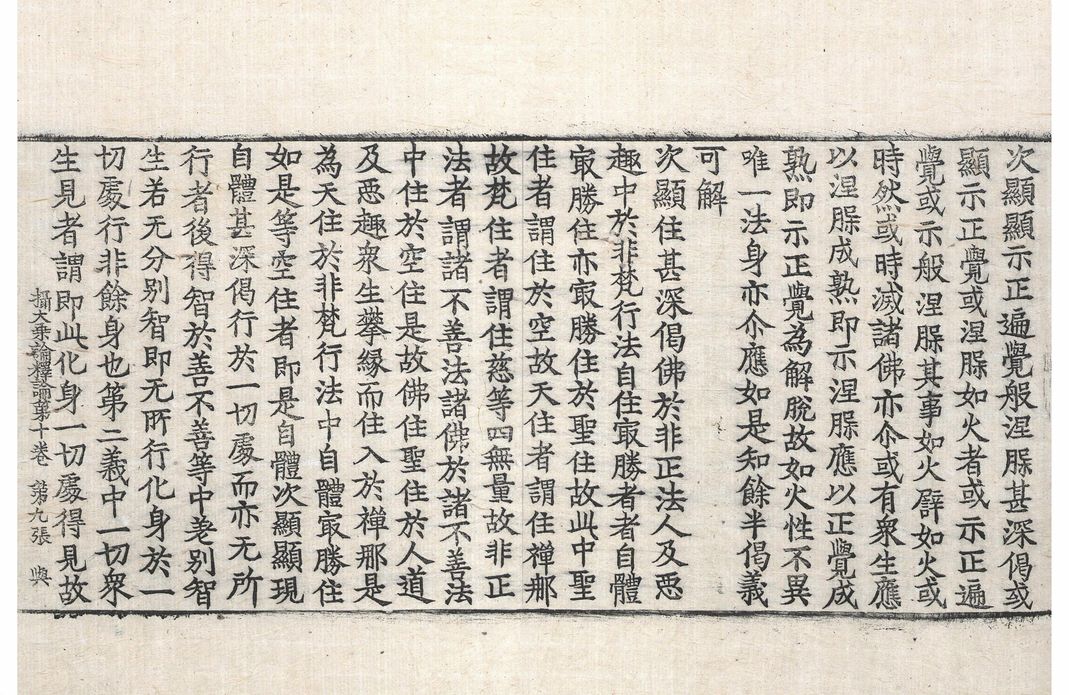 次顯顯示正遍覺般涅脲甚深偈或
顯示正覺或涅脲如火者或示正遍
覺或示般涅脲其事如火譬如火或
時然或時滅諸佛亦尒或有衆生應
以涅脲成熟即示涅脲應以正覺成
熟即示正覺為解脫故如火性不異
唯一法身亦尒應如是知餘半偈義
可解
次顯住甚深偈佛於非正法人及惡
趣中於非梵行法自住㝡勝者者自體
㝡勝住亦㝡勝住於聖住故此中聖
住者謂住於空故天住者謂住禅那
故梵住者謂住慈等四無量故非正
法者謂諸不善法諸佛於諸不善法
中住於空住是故佛住聖住於人道
及惡趣衆生攀緣而住入於禅那是
為天住於非梵行法中自體㝡勝住
如是等空住者即是自體次顯顯現
自體甚深偈行於一切處而亦无所
行者後得智於善不善等中差别智
生若无分别智即无所行化身於一
切處行非餘身也第二義中一切衆
生見者謂即此化身一切處得見故
攝大乘論釋論第十卷 第九張 與